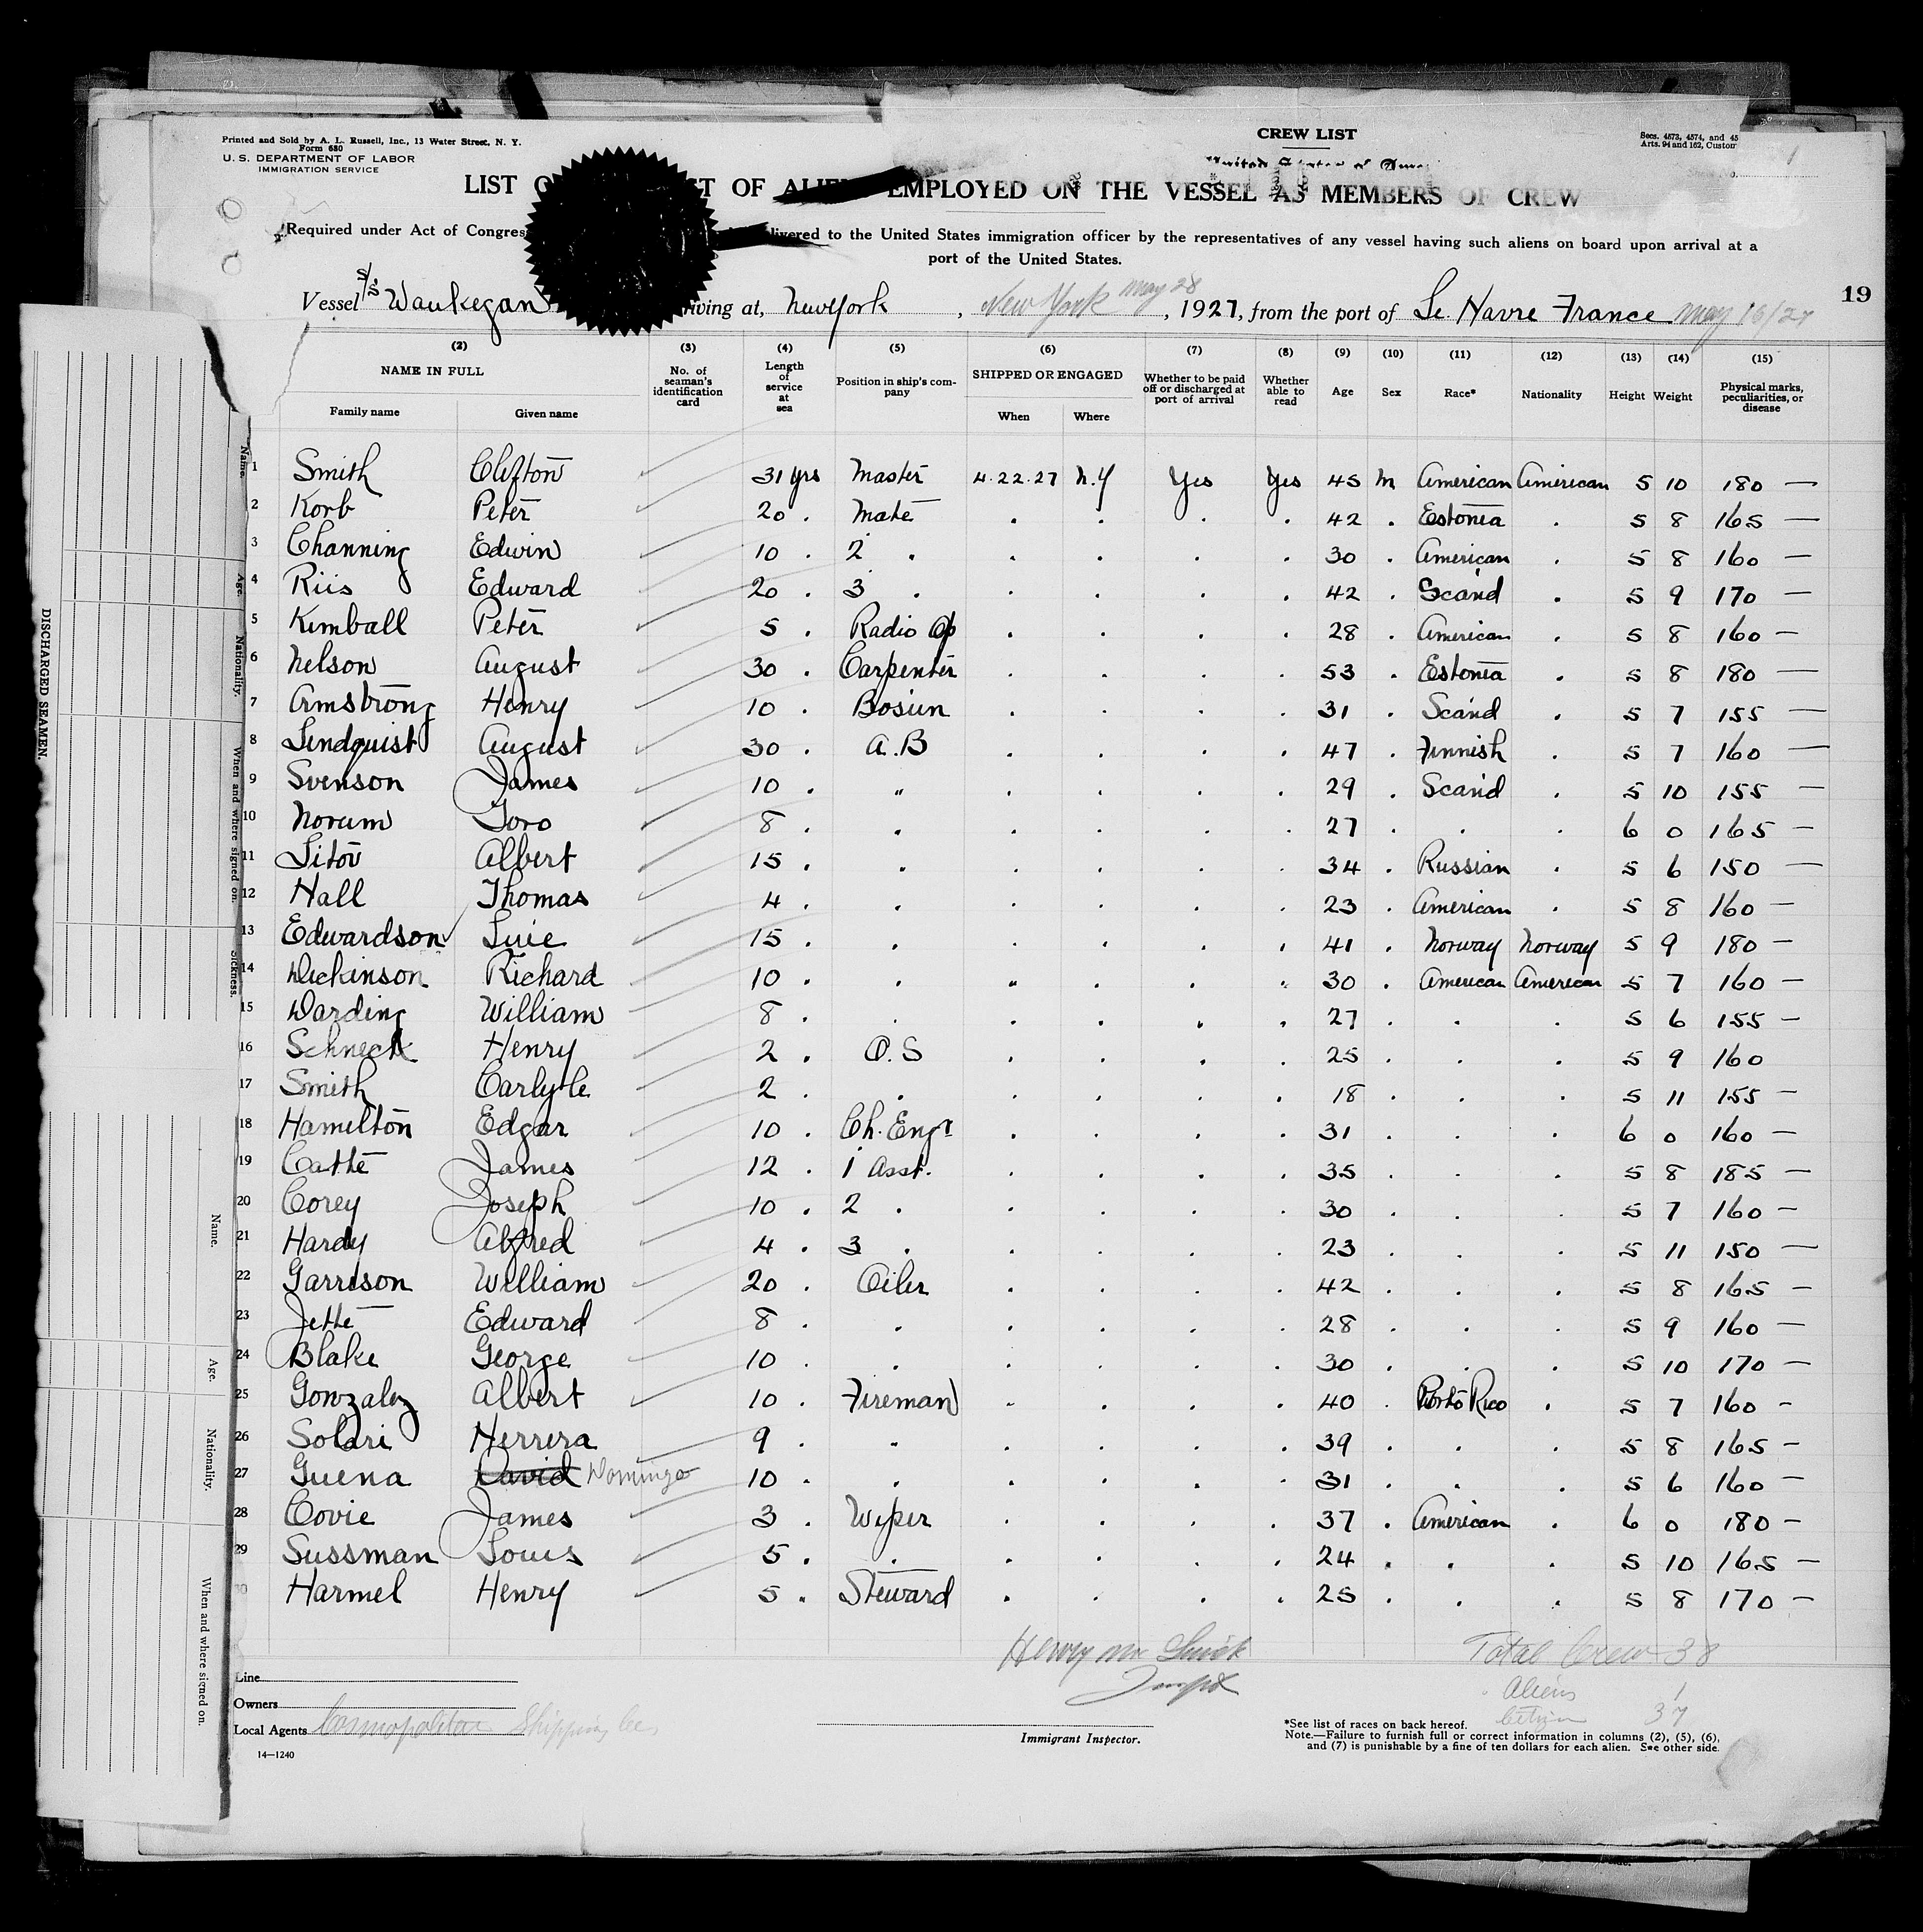 Printed and Sold by A. L. Russell, Inc., 13 Water Street, N. Y.
Form 680
U. S. DEPARTMENT OF LABOR
IMMIGRATION SERVICE
CREW LIST
Secs. 4573, 4574, and 45
Arts. 94 and 162, Custom
United States of Amer
LIST OF ALIENS EMPLOYED ON THE VESSEL AS MEMBERS OF CREW
Required under Act of Congress delivered to the United States immigration officer by the representatives of any vessel having such aliens on board upon arrival at a
port of the United States.
Vessel S/S Waukegan arriving at, New York, New York May 28, 1927, from the port of Le Havre France May 16/27
19
(2) (3) (4) (5) (6) (7) (8) (9) (10) (11) (12) (13) (14) (15)
NAME IN FULL Family name Given name No. of seaman's identification card Length of service at sea Position in ship's company SHIPPED OR ENGAGED When Where Whether to be paid off or discharged at port of arrival Whether able to read Age Sex Race* Nationality Height Weight Physical marks, peculiarities, or disease
1 Smith Clifton 31 yrs Master 4.22.27 N.Y Yes Yes 45 M American American 5 10 180 —
2 Korb Peter 20 . Mate . . . . 42 . Estonia . 5 8 165 —
3 Channing Edwin 10 . 2 . . . . . 30 . American . 5 8 160 —
4 Riis Edward 20 . 3 . . . . . 42 . Scand . 5 9 170 —
5 Kimball Peter 5 . Radio Op . . . . 28 . American . 5 8 160 —
6 Nelson August 30 . Carpenter . . . . 53 . Estonia . 5 8 180 —
7 Armstrong Henry 10 . Bosun . . . . 31 . Scand . 5 7 155 —
8 Lindquist August 30 . A.B . . . . 47 . Finnish . 5 7 160 —
9 Svenson James 10 . " . . . . 29 . Scand . 5 10 155 —
10 Norum Toro 8 . . . . . . 27 . . . 6 0 165 —
11 Litov Albert 15 . . . . . . 34 . Russian . 5 6 150 —
12 Hall Thomas 4 . . . . . . 23 . American . 5 8 160 —
13 Edwardson 15 . . . . . . 41 . Norway Norway 5 9 180 —
14 Dickinson Richard 10 . . . . . . 30 . American American 5 7 160 —
15 Darding William 8 . . . . . . 27 . . . 5 6 155 —
16 Schneck Henry 2 . O.S . . . . 25 . . . 5 9 160
17 Smith Carlytle 2 . . . . . . 18 . . . 5 11 155 —
18 Hamilton Edgar 10 . Ch. Engr . . . . 31 . . . 6 0 160 —
19 Catte James 12 . 1 Asst. . . . . 35 . . . 5 8 185 —
20 Corey Joseph 10 . 2 . . . . . 30 . . . 5 7 160 —
21 Hardy Alfred 4 . 3 . . . . . 23 . . . 5 11 150 —
22 Garrison William 20 . Oiler . . . . 42 . . . 5 8 165 —
23 Jette Edward 8 . . . . . . 28 . . . 5 9 160 —
24 Blake George 10 . . . . . . 30 . . . 5 10 170 —
25 Gonzalez Albert 10 . Fireman . . . . 40 . Porto Rico . 5 7 160 -
26 Solari Herrera 9 . . . . . . 39 . . . 5 8 165 —
27 Guena David Domingo 10 . . . . . . 31 . . . 5 6 160 —
28 Covie James 3 . Wiper . . . . 37 . American . 6 0 180 —
29 Sussman Louis 5 . . . . . . 24 . . . 5 10 165 —
30 Harmel Henry 5 . Steward . . . . 25 . . . 5 8 170 —
Total Crew 38
Aliens 1
Citizen 37
Line
Owners
Local Agents Cosmopolitan Shipping Co.
14—1240
Immigrant Inspector.
*See list of races on back hereof.
Note.—Failure to furnish full or correct information in columns (2), (5), (6),
and (7) is punishable by a fine of ten dollars for each alien. See other side.
DISCHARGED SEAMEN.
Name.
Age.
Nationality.
When and where signed on.
Sickness.
Name.
Age.
Nationality.
When and where signed on.